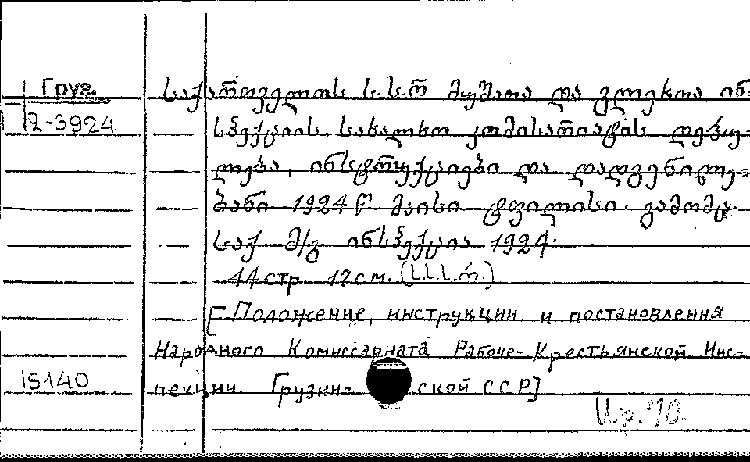 Груз
12-3924
საქართველოს ს.ს.რ მუშათა და გლეხთა ინ-
სპექციის სახალხო კომისარიატის დებუ-
ლება, ინსტრუქციები და დადგენილე-
ბანი 1924 წ მაისი ტფილისი. გამომც.
საქ მ/გ ინსპექცია 1924.
44 стр 17 см. (ს.ს.ს.რ.)
[Положение, инструкции и постановления
Народного Комиссариата Рабоче-Крестьянской Инс-
пекции Грузин-ской ССР]
15140
Цр. 70.